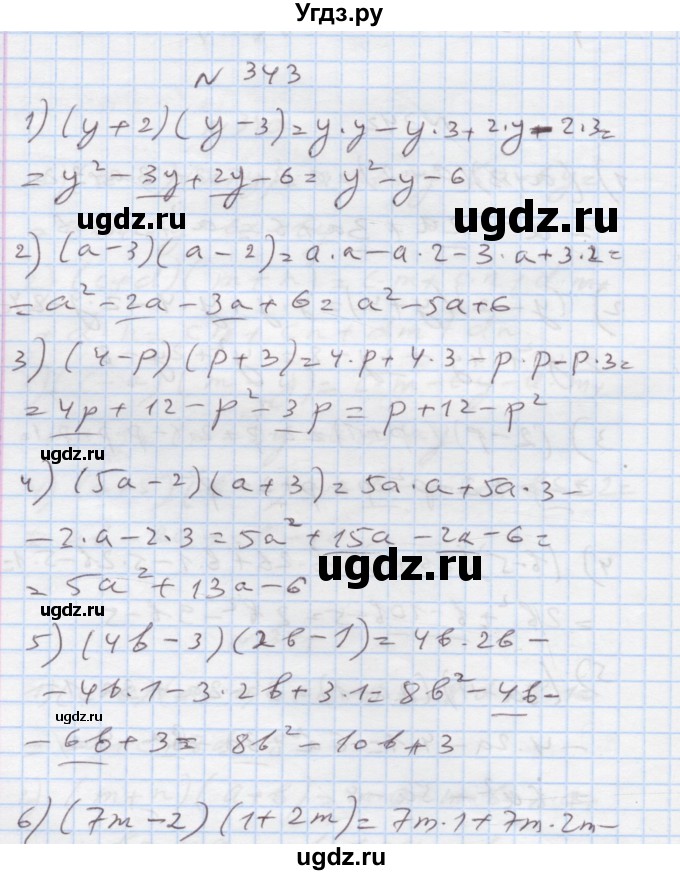 Угдз.ру
N 343
1) (y+2)(y-3)=y·y-y·3+2·y-2·3=
=y²-3y+2y-6=y²-y-6
ugdz.ru
ugdz.ru
2) (a-3)(a-2)=a·a-a·2-3·a+3·2=
=a²-2a-3a+6=a²-5a+6
3) (4-p)(p+3)=4·p+4·3-p·p-p·3=
=4p+12-p²-3p=p+12-p²
ugdz.ru
ugdz.ru
4) (5a-2)(a+3)=5a·a+5a·3-
-2·a-2·3=5a²+15a-2a-6=
ugdz.ru
=5a²+13a-6
5) (4b-3)(2b-1)=4b·2b-
-4b·1-3·2b+3·1=8b²-4b-
ugdz.ru
ugdz.ru
-6b+3=8b²-10b+3
6) (7m-2)(1+2m)=7m·1+7m·2m-
ugdz.ru